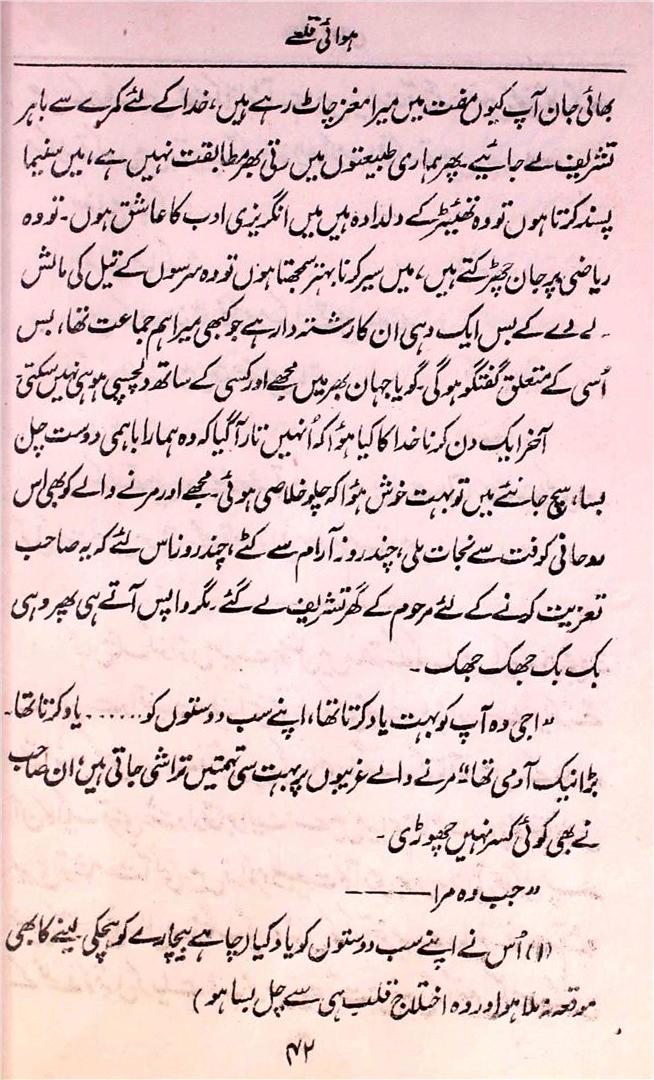 ہوائی قلعے
بھائی جان آپ کیوں مفت میں میرا مغز چاٹ رہے ہیں، خدا کے لئے کمرے سے باہر
تشریف لے جائیے۔ پھر ہماری طبیعتوں میں رتی بھر مطابقت نہیں ہے، میں سنیما
پسند کرتا ہوں تو وہ تھیئٹر کے دلدادہ ہیں میں انگریزی ادب کا عاشق ہوں۔ تو وہ
ریاضی پر جان چھڑکتے ہیں، میں سیر کرنا بہتر سمجھتا ہوں تو وہ سرسوں کے تیل کی مالش
۔ لے دے کے بس ایک وہی ان کا رشتہ دار ہے جو کبھی میرا ہم جماعت تھا، بس
اُسی کے متعلق گفتگو ہوگی۔ گویا جہان بھر میں مجھے اور کسی کے ساتھ دلچسپی ہو ہی نہیں سکتی
آخر ایک دن کرنا خدا کا کیا ہؤا کہ اُنہیں تار آگیا کہ وہ ہمارا باہمی دوست چل
بسا، سچ جانئے میں تو بہت خوش ہؤا کہ چلو خلاصی ہوئی۔ مجھے اور مرنے والے کو بھی اس
روحانی کوفت سے نجات ملی، چند روز آرام سے کٹے، چند روز اس لئے کہ یہ صاحب
تعزیت کرنے کے لئے مرحوم کے گھر تشریف لے گئے۔ مگر واپس آتے ہی پھر وہی
بک بک جھک جھک۔
"اجی وہ آپ کو بہت یاد کرتا تھا، اپنے سب دوستوں کو...... یاد کرتا تھا۔
بڑا نیک آدمی تھا" مرنے والے غریبوں پر بہت سی تہمتیں تراشی جاتی ہیں؛ ان صاحب
نے بھی کوئی کسر نہیں چھوڑی۔
"جب وہ مرا ————
(۱) اُس نے اپنے سب دوستوں کو یاد کیا (چاہے بیچارے کو ہچکی لینے کا بھی
موقعہ نہ ملا ہو اور وہ اختلاج قلب ہی سے چل بسا ہو)
۴۲